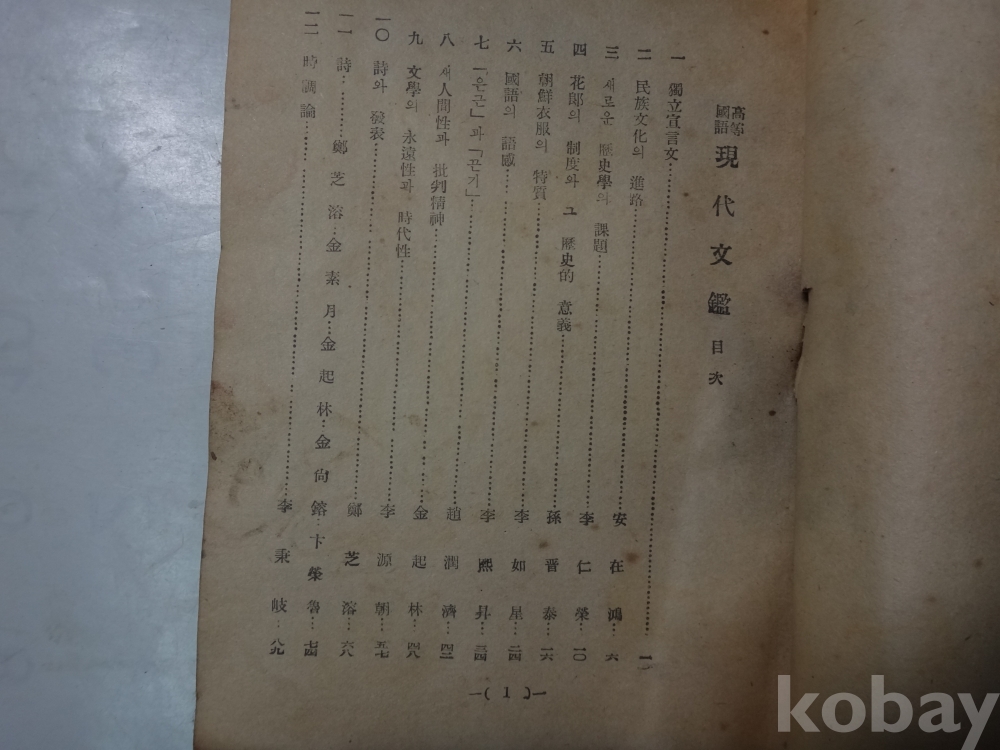 高等國語 現代文鑑 目次
一 獨立宣言文……一
二 民族文化의 進路……安在鴻…六
三 새로운 歷史學의 課題……李仁榮…一〇
四 花郎의 制度와 그 歷史的 意義……孫晋泰…一六
五 朝鮮衣服의 特質……李如星…二四
六 國語의 語感……李熙昇…三四
七 「은근」과「끈기」……趙潤濟…四三
八 새 人間性과 批判精神……金起林…四八
九 文學의 永遠性과 時代性……李源朝…五七
一〇 詩와 發表……鄭芝溶…六八
一一 詩……鄭芝溶…金素月…金起林…金尙鎔…卞榮魯…七四
一二 時調論……李秉岐…八九
—( 1 )—
kobay